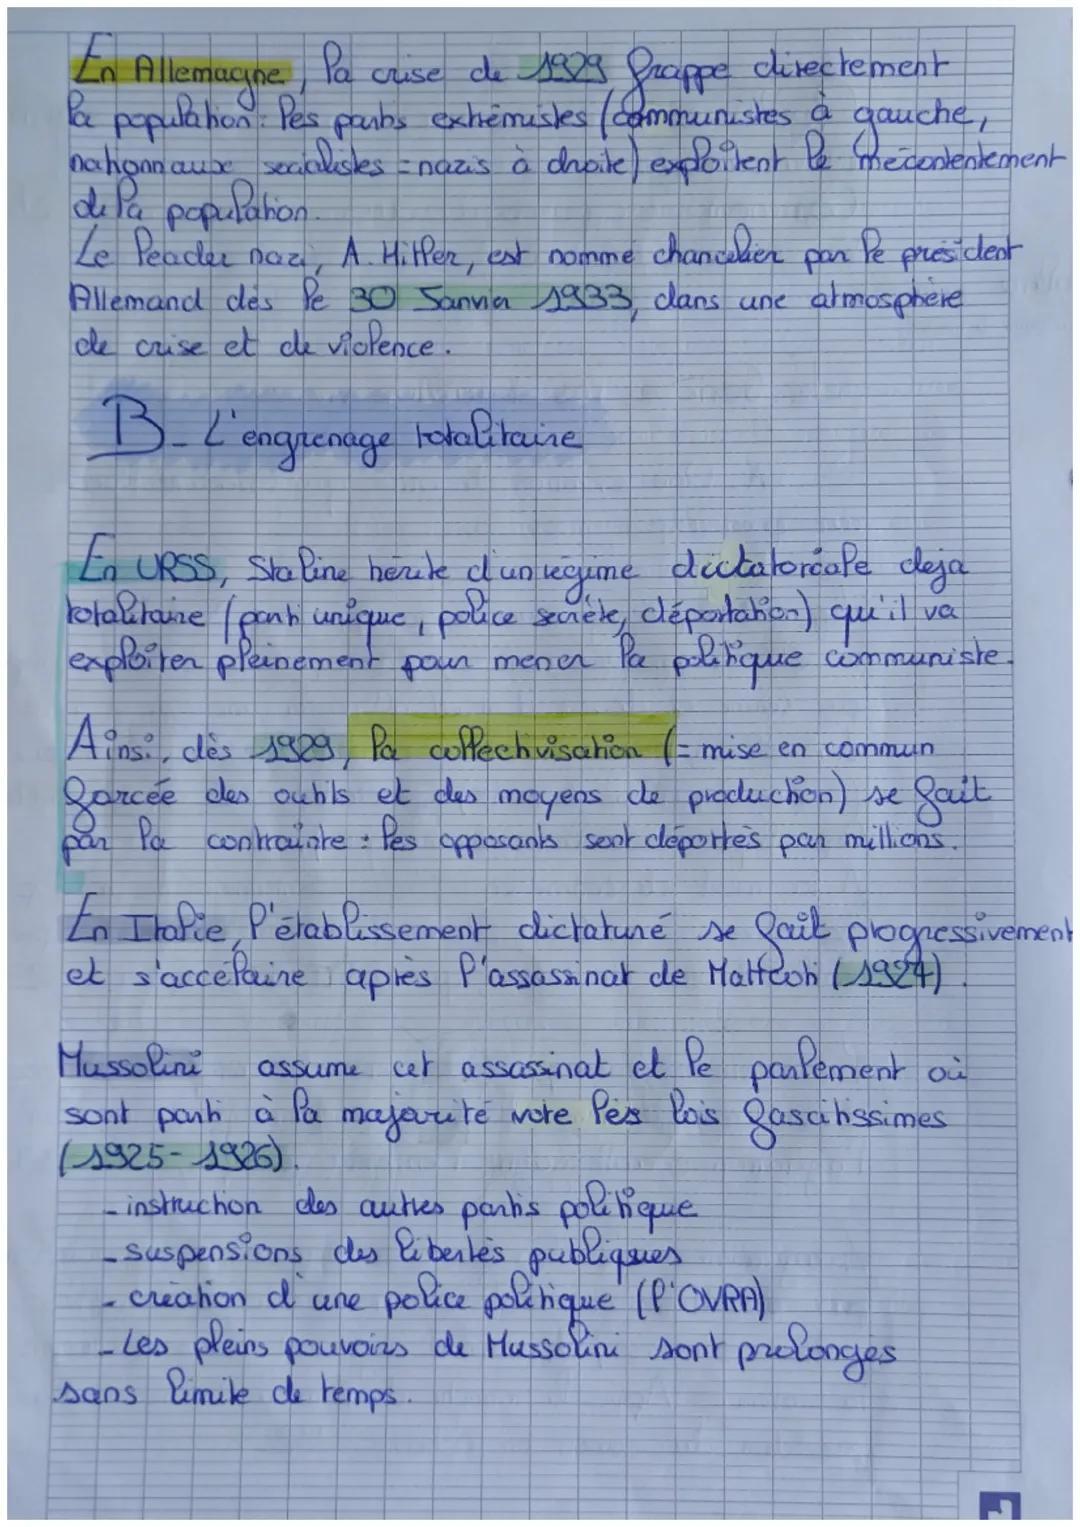 En Allemagne, la crise de 1929 frappe directement
la population : les partis extrémistes (communistes à gauche,
nationnaux socialistes = nazis à droite) exploitent le mécontentement
de la population.
Le leader nazi, A. Hitler, est nommé chancelier par le président
Allemand dès le 30 Janvier 1933, dans une atmosphère
de crise et de violence.
B - L'engrenage totalitaire
En URSS, Staline hérite d'un régime dictatoriale deja
totalitaire (parti unique, police secrète, déportation) qu'il va
exploiter pleinement pour mener la politique communiste.
Ainsi, dès 1929, la collectivisation (= mise en commun
forcée des outils et des moyens de production) se fait
par la contrainte : les opposants sont déportés par millions.
En Italie, l'établissement dictature se fait progressivement
et s'accélaire après l'assassinat de Matteoti (1924).
Mussolini assume cet assassinat et le parlement où
sont parti à la majorité vote les lois fascitissimes
(1925-1926).
- instruction des autres partis politique
- suspensions des libertés publiques
- création d'une police politique (l'OVRA)
- Les pleins pouvoirs de Mussolini sont prolongés
sans limite de temps.